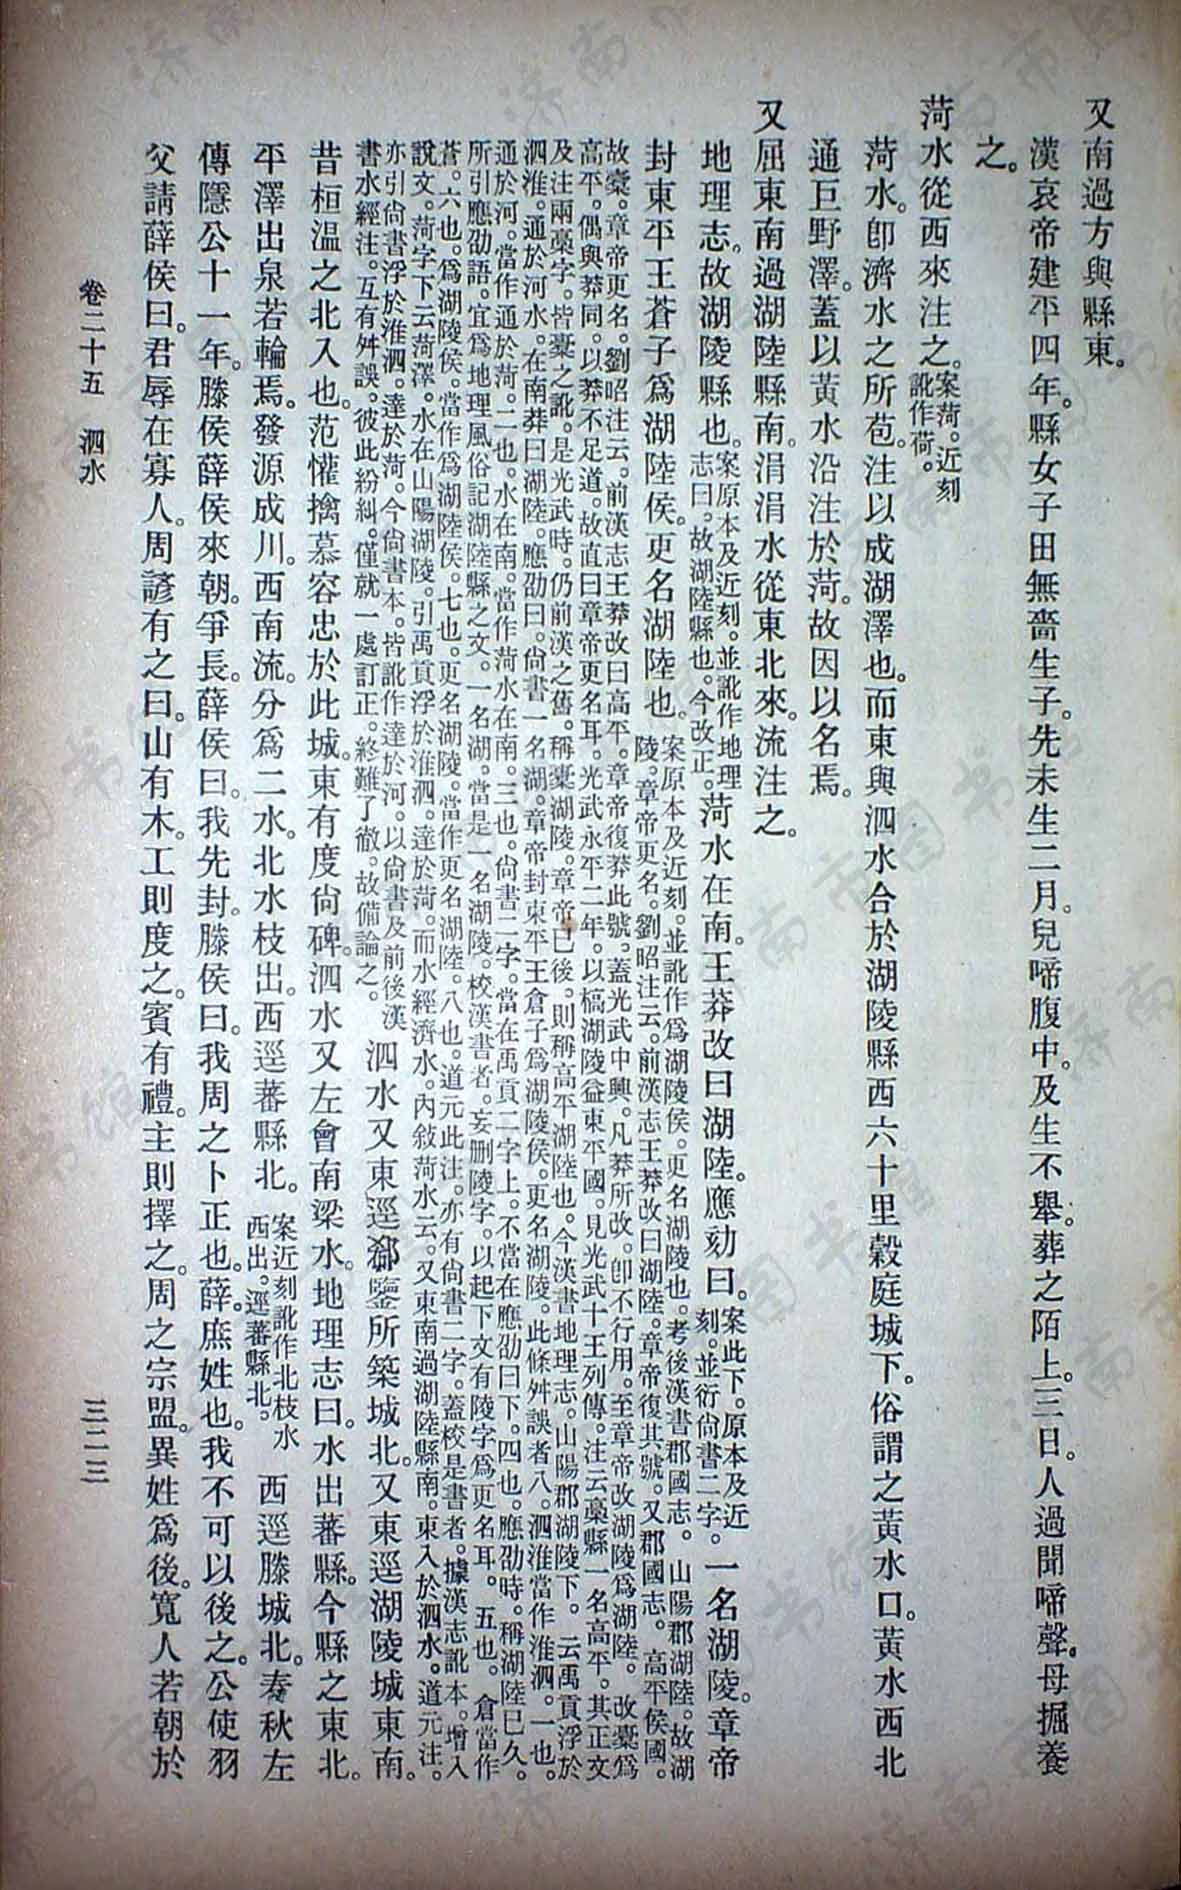 又南過方與縣東。
漢哀帝建平四年。縣女子田無嗇生子。先未生二月。兒啼腹中。及生不舉。葬之陌上。三日。人過聞啼聲。母掘養
之。
菏水從西來注之。案菏。近刻訛作荷。
菏水。卽濟水之所苞。注以成湖澤也。而東與泗水合於湖陵縣西六十里穀庭城下。俗謂之黃水口。黃水西北
通巨野澤。蓋以黃水沿注於菏。故因以名焉。
又屈東南過湖陸縣南。涓涓水從東北來。流注之。
地理志。故湖陵縣也。案原本及近刻。並訛作地理志曰。故湖陸縣也。今改正。菏水在南。王莽改曰湖陸。應劾曰。案此下。原本及近刻。並衍尙書二字。一名湖陵。章帝
封東平王蒼子爲湖陸侯。更名湖陸也。案原本及近刻。並訛作爲湖陵侯。更名湖陵也。考後漢書郡國志。山陽郡湖陸。故湖陵。章帝更名。劉昭注云。前漢志王莽改曰湖陸。章帝復其號。又郡國志。高平侯國。
故橐。章帝更名。劉昭注云。前漢志王莽改曰高平。章帝復莽此號。蓋光武中興。凡莽所改。卽不行用。至章帝改湖陵爲湖陸。改橐爲
高平。偶與莽同。以莽不足道。故直曰章帝更名耳。光武永平二年。以槁湖陵益東平國。見光武十王列傳。注云橐縣一名高平。其正文
及注兩稾字。皆橐之訛。是光武時。仍前漢之舊。稱橐湖陵。章帝已後。則稱高平湖陸也。今漢書地理志。山陽郡湖陵下。云禹貢浮於
泗淮。通於河水。在南莽曰湖陸。應劭曰。尙書一名湖。章帝封東平王倉子爲湖陵侯。更名湖陵。此條舛誤者八。泗淮當作淮泗。一也。
通於河。當作通於菏。二也。水在南。當作菏水在南。三也。尙書二字。當在禹貢二字上。不當在應劭曰下。四也。應劭時。稱湖陸已久。
所引應劭語。宜爲地理風俗記湖陸縣之文。一名湖。當是一名湖陵。校漢書者。妄刪陵字。以起下文有陵字爲更名耳。五也。倉當作
蒼。六也。爲湖陵侯。當作爲湖陸侯。七也。更名湖陵。當作更名湖陸。八也。道元此注。亦有尙書二字。蓋校是書者。據漢志訛本。增入
說文。菏字下云菏澤。水在山陽湖陵。引禹貢浮於淮泗。達於菏。而水經濟水。內敍菏水云。又東南過湖陸縣南。東入於泗水。道元注。
亦引尙書浮於淮泗。達於菏。今尙書本。皆訛作達於河。以尙書及前後漢
書水經注。互有舛誤。彼此紛糾。僅就一處訂正。終難了徹。故備論之。泗水又東逕郗鑒所築城北。又東逕湖陵城東南。
昔桓溫之北入也。范懽擒慕容忠於此城。東有度尙碑。泗水又左會南梁水。地理志曰。水出蕃縣。今縣之東北。
平澤出泉若輪焉。發源成川。西南流。分爲二水。北水枝出。西逕蕃縣北。案近刻訛作北枝水西出。逕蕃縣北。西逕滕城北。春秋左
傳隱公十一年。滕侯薛侯來朝。爭長。薛侯曰。我先封。滕侯曰。我周之卜正也。薛。庶姓也。我不可以後之。公使羽
父請薛侯曰。君辱在寡人。周諺有之曰。山有木。工則度之。賓有禮。主則擇之。周之宗盟。異姓爲後。寬人若朝於
卷二十五 泗水
三二三